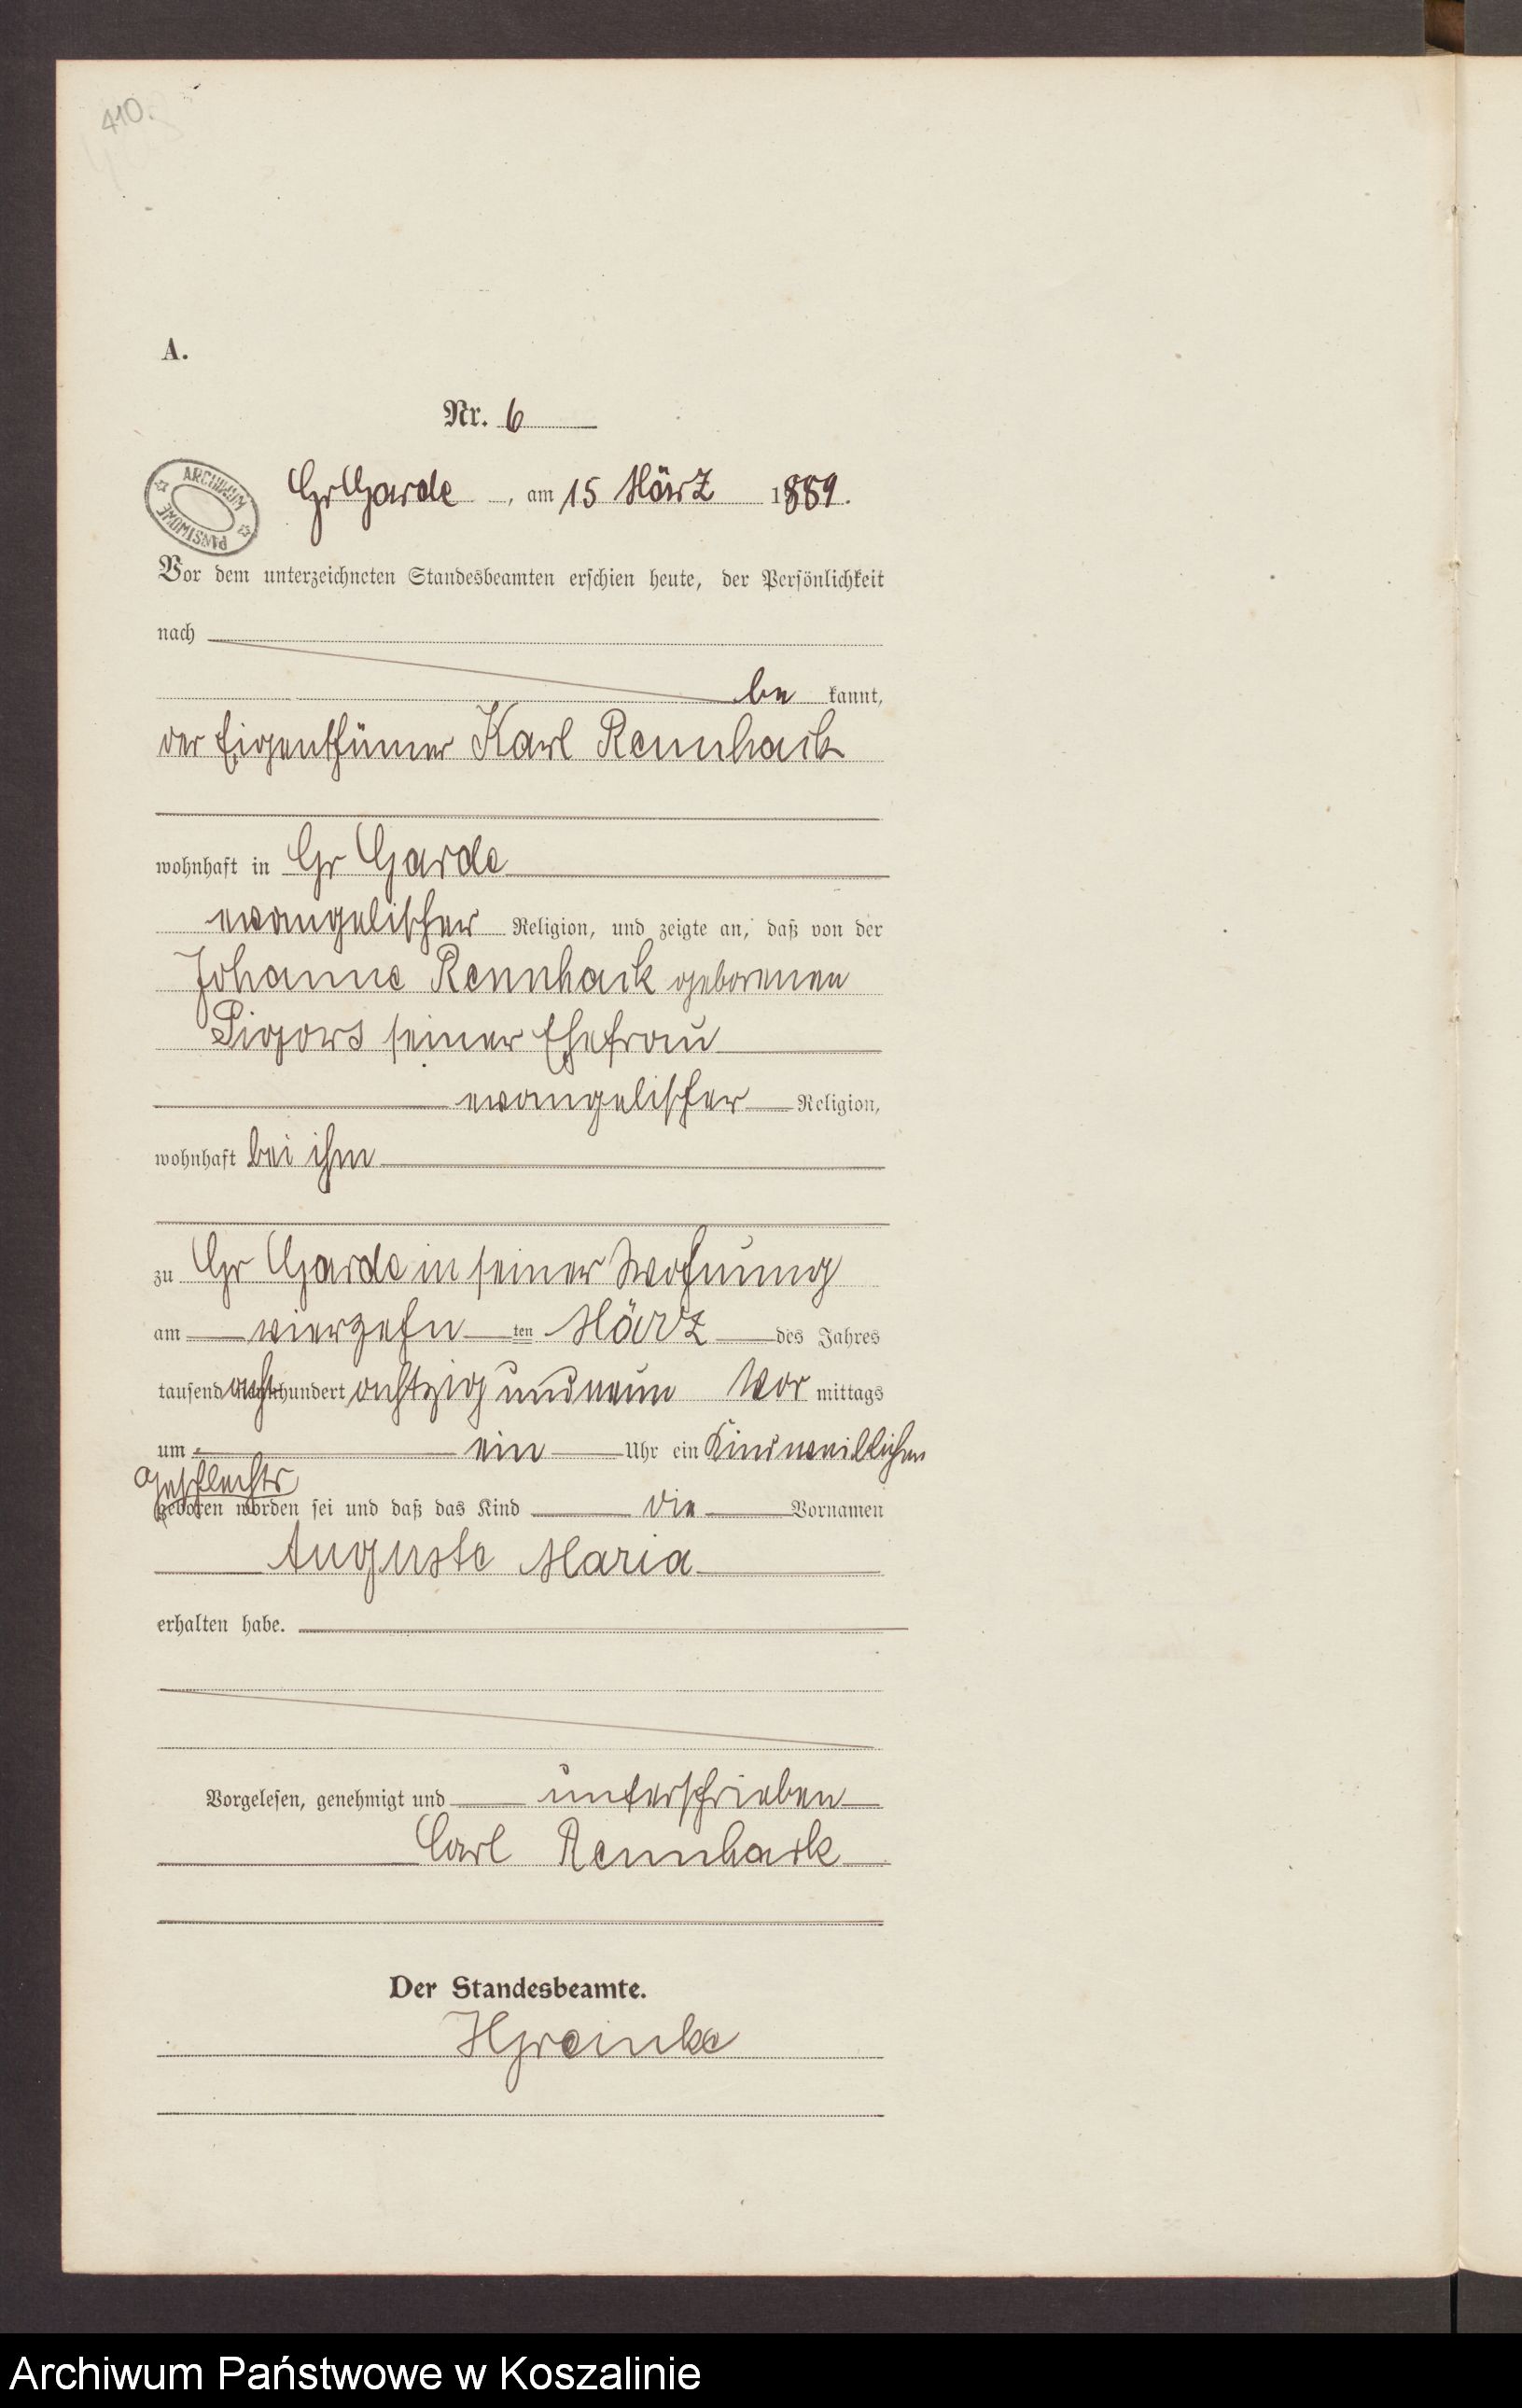 410.
A.
Nr. 6
ARCHIWUM PAŃSTWOWE
Gr Garde, am 15 März 1889.
Vor dem unterzeichneten Standesbeamten erschien heute, der Persönlichkeit
nach
be kannt,
der Eigenthümer Karl Rennhack
wohnhaft in Gr Garde
evangelischer Religion, und zeigte an, daß von der
Johanne Rennhack geborenen
Pigors seiner Ehefrau
evangelischer Religion,
wohnhaft bei ihm
zu Gr Garde in seiner Wohnung
am vierzehn ten März des Jahres
tausend acht hundert achtzig und neun Vor mittags
um ein Uhr ein Kind weiblichen
Geschlechts
geboren worden sei und daß das Kind die Vornamen
Auguste Maria
erhalten habe.
Vorgelesen, genehmigt und unterschrieben
Carl Rennhack
Der Standesbeamte.
Archiwum Państwowe w Koszalinie